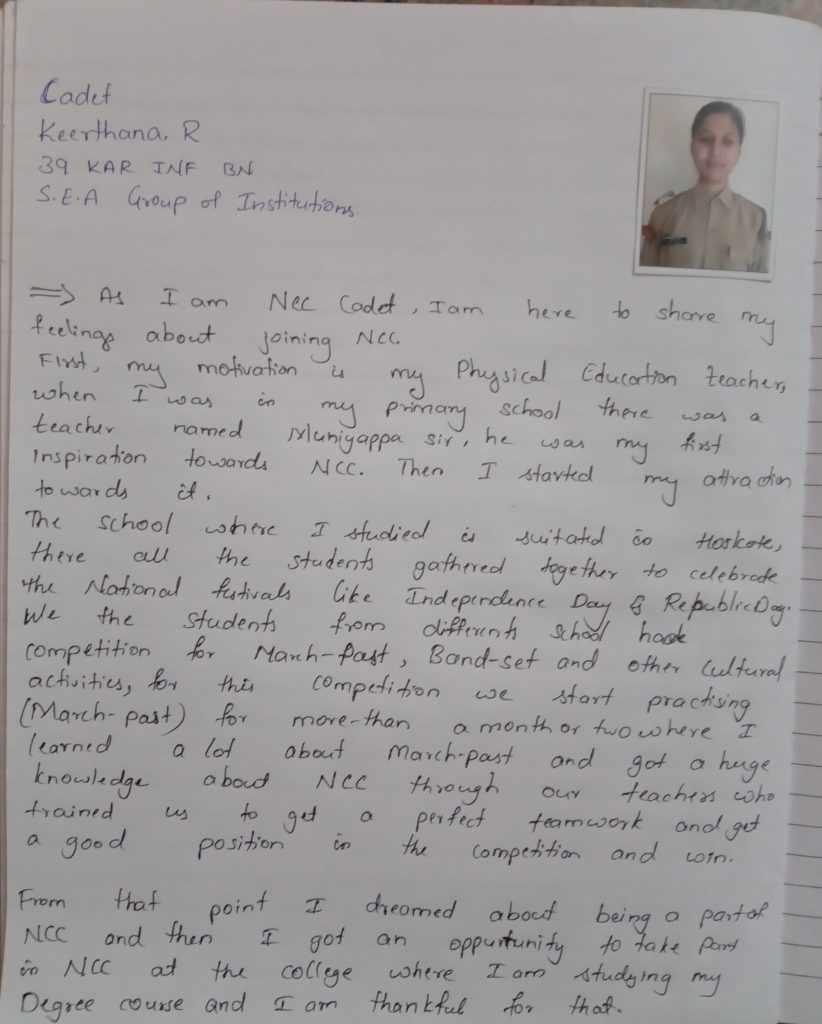 Cadet
Keerthana. R
39 KAR INF BN
S.E.A Group of Institutions.
⇒ As I am NCC Cadet, I am here to share my
feelings about joining NCC.
First, my motivation is my Physical Education teacher,
when I was in my primary school there was a
teacher named Muniyappa sir, he was my first
Inspiration towards NCC. Then I started my attraction
towards it.
The school where I studied is suitated in Hoskote,
there all the students gathered together to celebrate
the National festivals like Independence Day & Republic Day.
We the students from differents school had
competition for March-Past, Band-set and other Cultural
activities, for this competition we start practising
(March-past) for more-than a month or two where I
learned a lot about March-past and got a huge
knowledge about NCC through our teachers who
trained us to get a perfect teamwork and get
a good position in the competition and win.
From that point I dreamed about being a part of
NCC and then I got an oppurtunity to take part
in NCC at the college where I am studying my
Degree course and I am thankful for that.